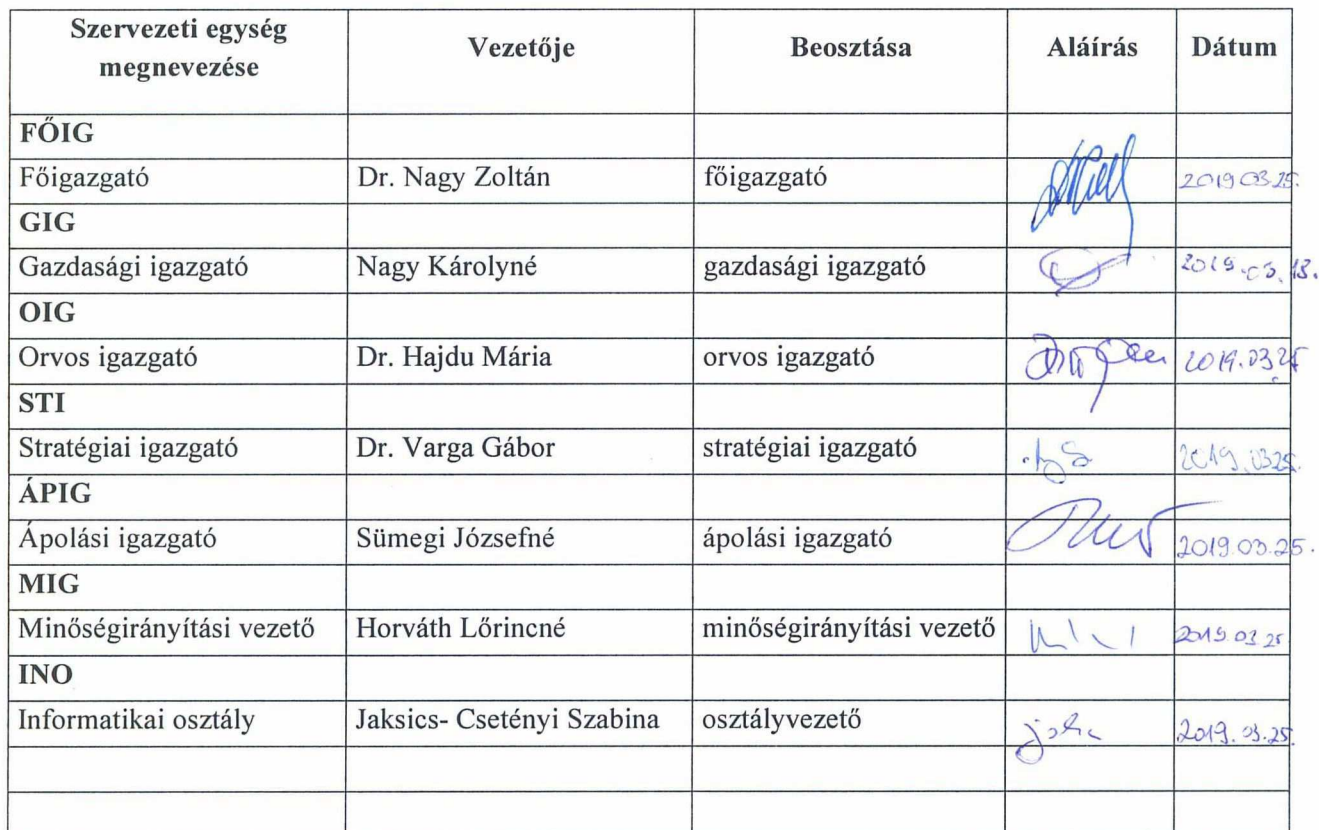 Szervezeti egység megnevezése Vezetője Beosztása Aláírás Dátum
FŐIG
Főigazgató Dr. Nagy Zoltán főigazgató 2019 03.25.
GIG
Gazdasági igazgató Nagy Károlyné gazdasági igazgató
OIG
Orvos igazgató Dr. Hajdu Mária orvos igazgató 2019.03.25
STI
Stratégiai igazgató Dr. Varga Gábor stratégiai igazgató 2019.03.25.
ÁPIG
Ápolási igazgató Sümegi Józsefné ápolási igazgató 2019.03.25.
MIG
Minőségirányítási vezető Horváth Lőrincné minőségirányítási vezető 2019.03.25
INO
Informatikai osztály Jaksics- Csetényi Szabina osztályvezető 2019.03.25.